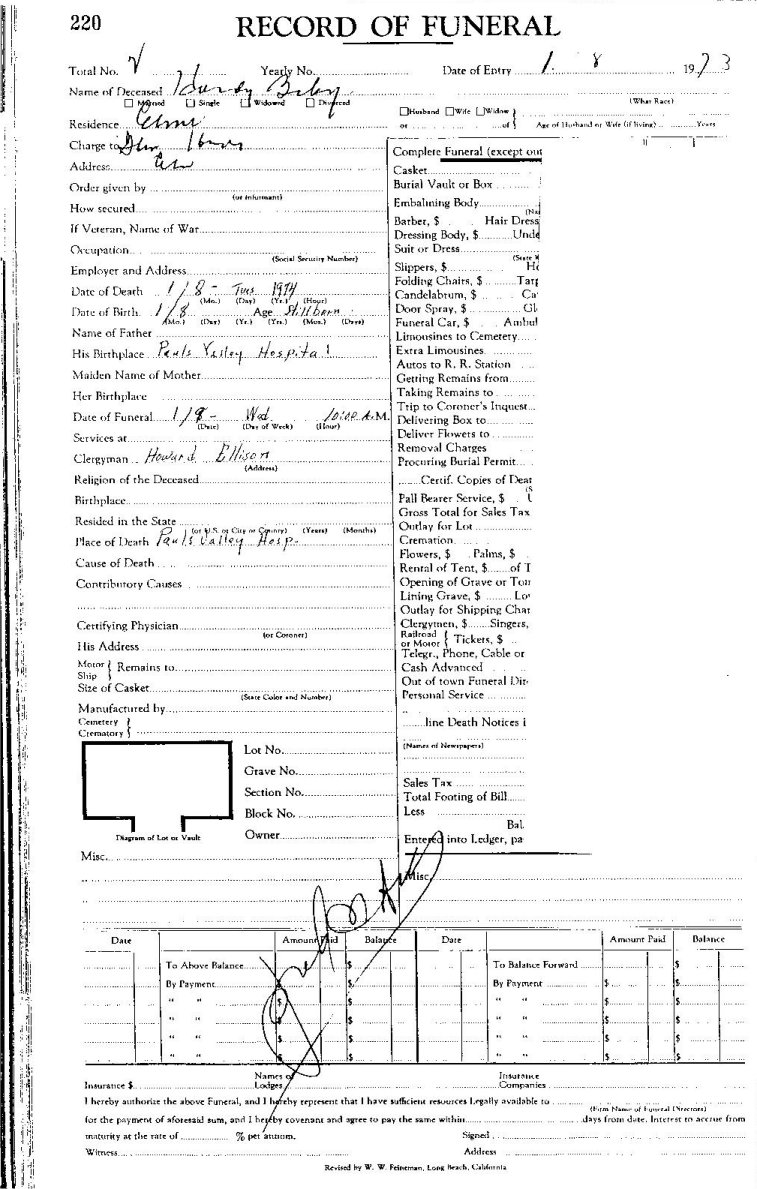 220
RECORD OF FUNERAL
Total No. Yearly No. Date of Entry 1 8 1973
Name of Deceased Baby
Married Single Widowed Divorced
Husband Wife Widow } (What Race)
or of } Age of Husband or Wife (if living) Years
Residence
Charge to
Address
Order given by
(or informant)
How secured
If Veteran, Name of War
Occupation
(Social Security Number)
Employer and Address
Date of Death 1 / 8 - Tues 1974
(Mo.) (Day) (Yr.) (Hour)
Date of Birth 1/8 Age Stillborn
(Mo.) (Day) (Yr.) (Yrs.) (Mos.) (Days)
Name of Father
His Birthplace Pauls Valley Hospital
Maiden Name of Mother
Her Birthplace
Date of Funeral 1/9 - Wed 10:00 A.M.
(Date) (Day of Week) (Hour)
Services at
Clergyman Howard Ellison
(Address)
Religion of the Deceased
Birthplace
Resided in the State
(or U.S. or City or County) (Years) (Months)
Place of Death Pauls Valley Hosp.
Cause of Death
Contributory Causes
Certifying Physician
(or Coroner)
His Address
Motor } Remains to
Ship }
Size of Casket
(State Color and Number)
Manufactured by
Cemetery }
Crematory }
Lot No.
Grave No.
Section No.
Block No.
Owner
Diagram of Lot or Vault
Misc.
Complete Funeral (except out
Casket
Burial Vault or Box
Embalming Body
Barber, $ Hair Dress
Dressing Body, $ Unde
Suit or Dress
(State
Slippers, $
Folding Chairs, $ Tarp
Candelabrum, $ Ca
Door Spray, $ Gl
Funeral Car, $ Ambul
Limousines to Cemetery
Extra Limousines
Autos to R. R. Station
Getting Remains from
Taking Remains to
Trip to Coroner's Inquest
Delivering Box to
Deliver Flowers to
Removal Charges
Procuring Burial Permit
Certif. Copies of Deat
Pall Bearer Service, $
Gross Total for Sales Tax
Outlay for Lot
Cremation
Flowers, $ Palms, $
Rental of Tent, $ of T
Opening of Grave or Tom
Lining Grave, $ Lo
Outlay for Shipping Char
Clergymen, $ Singers,
Railroad } Tickets, $
or Motor }
Telegr., Phone, Cable or
Cash Advanced
Out of town Funeral Dir
Personal Service
line Death Notices i
(Names of Newspapers)
Sales Tax
Total Footing of Bill
Less
Bal.
Entered into Ledger, pa
Misc.
Date Amount Paid Balance Date Amount Paid Balance
To Above Balance $ To Balance Forward $
By Payment $ $ By Payment $ $
" " $ $ " " $ $
" " $ $ " " $ $
" " $ $ " " $ $
" " $ $ " " $ $
Insurance $ Names of Lodges Insurance Companies
I hereby authorize the above Funeral, and I hereby represent that I have sufficient resources Legally available to
(Firm Name of Funeral Directors)
for the payment of aforesaid sum, and I hereby covenant and agree to pay the same within days from date. Interest to accrue from
maturity at the rate of % per annum. Signed
Witness Address
Revised by W. W. Feineman, Long Beach, California